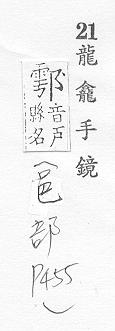 21龍龕手鏡
鄠音户
縣名
(邑部
P455)